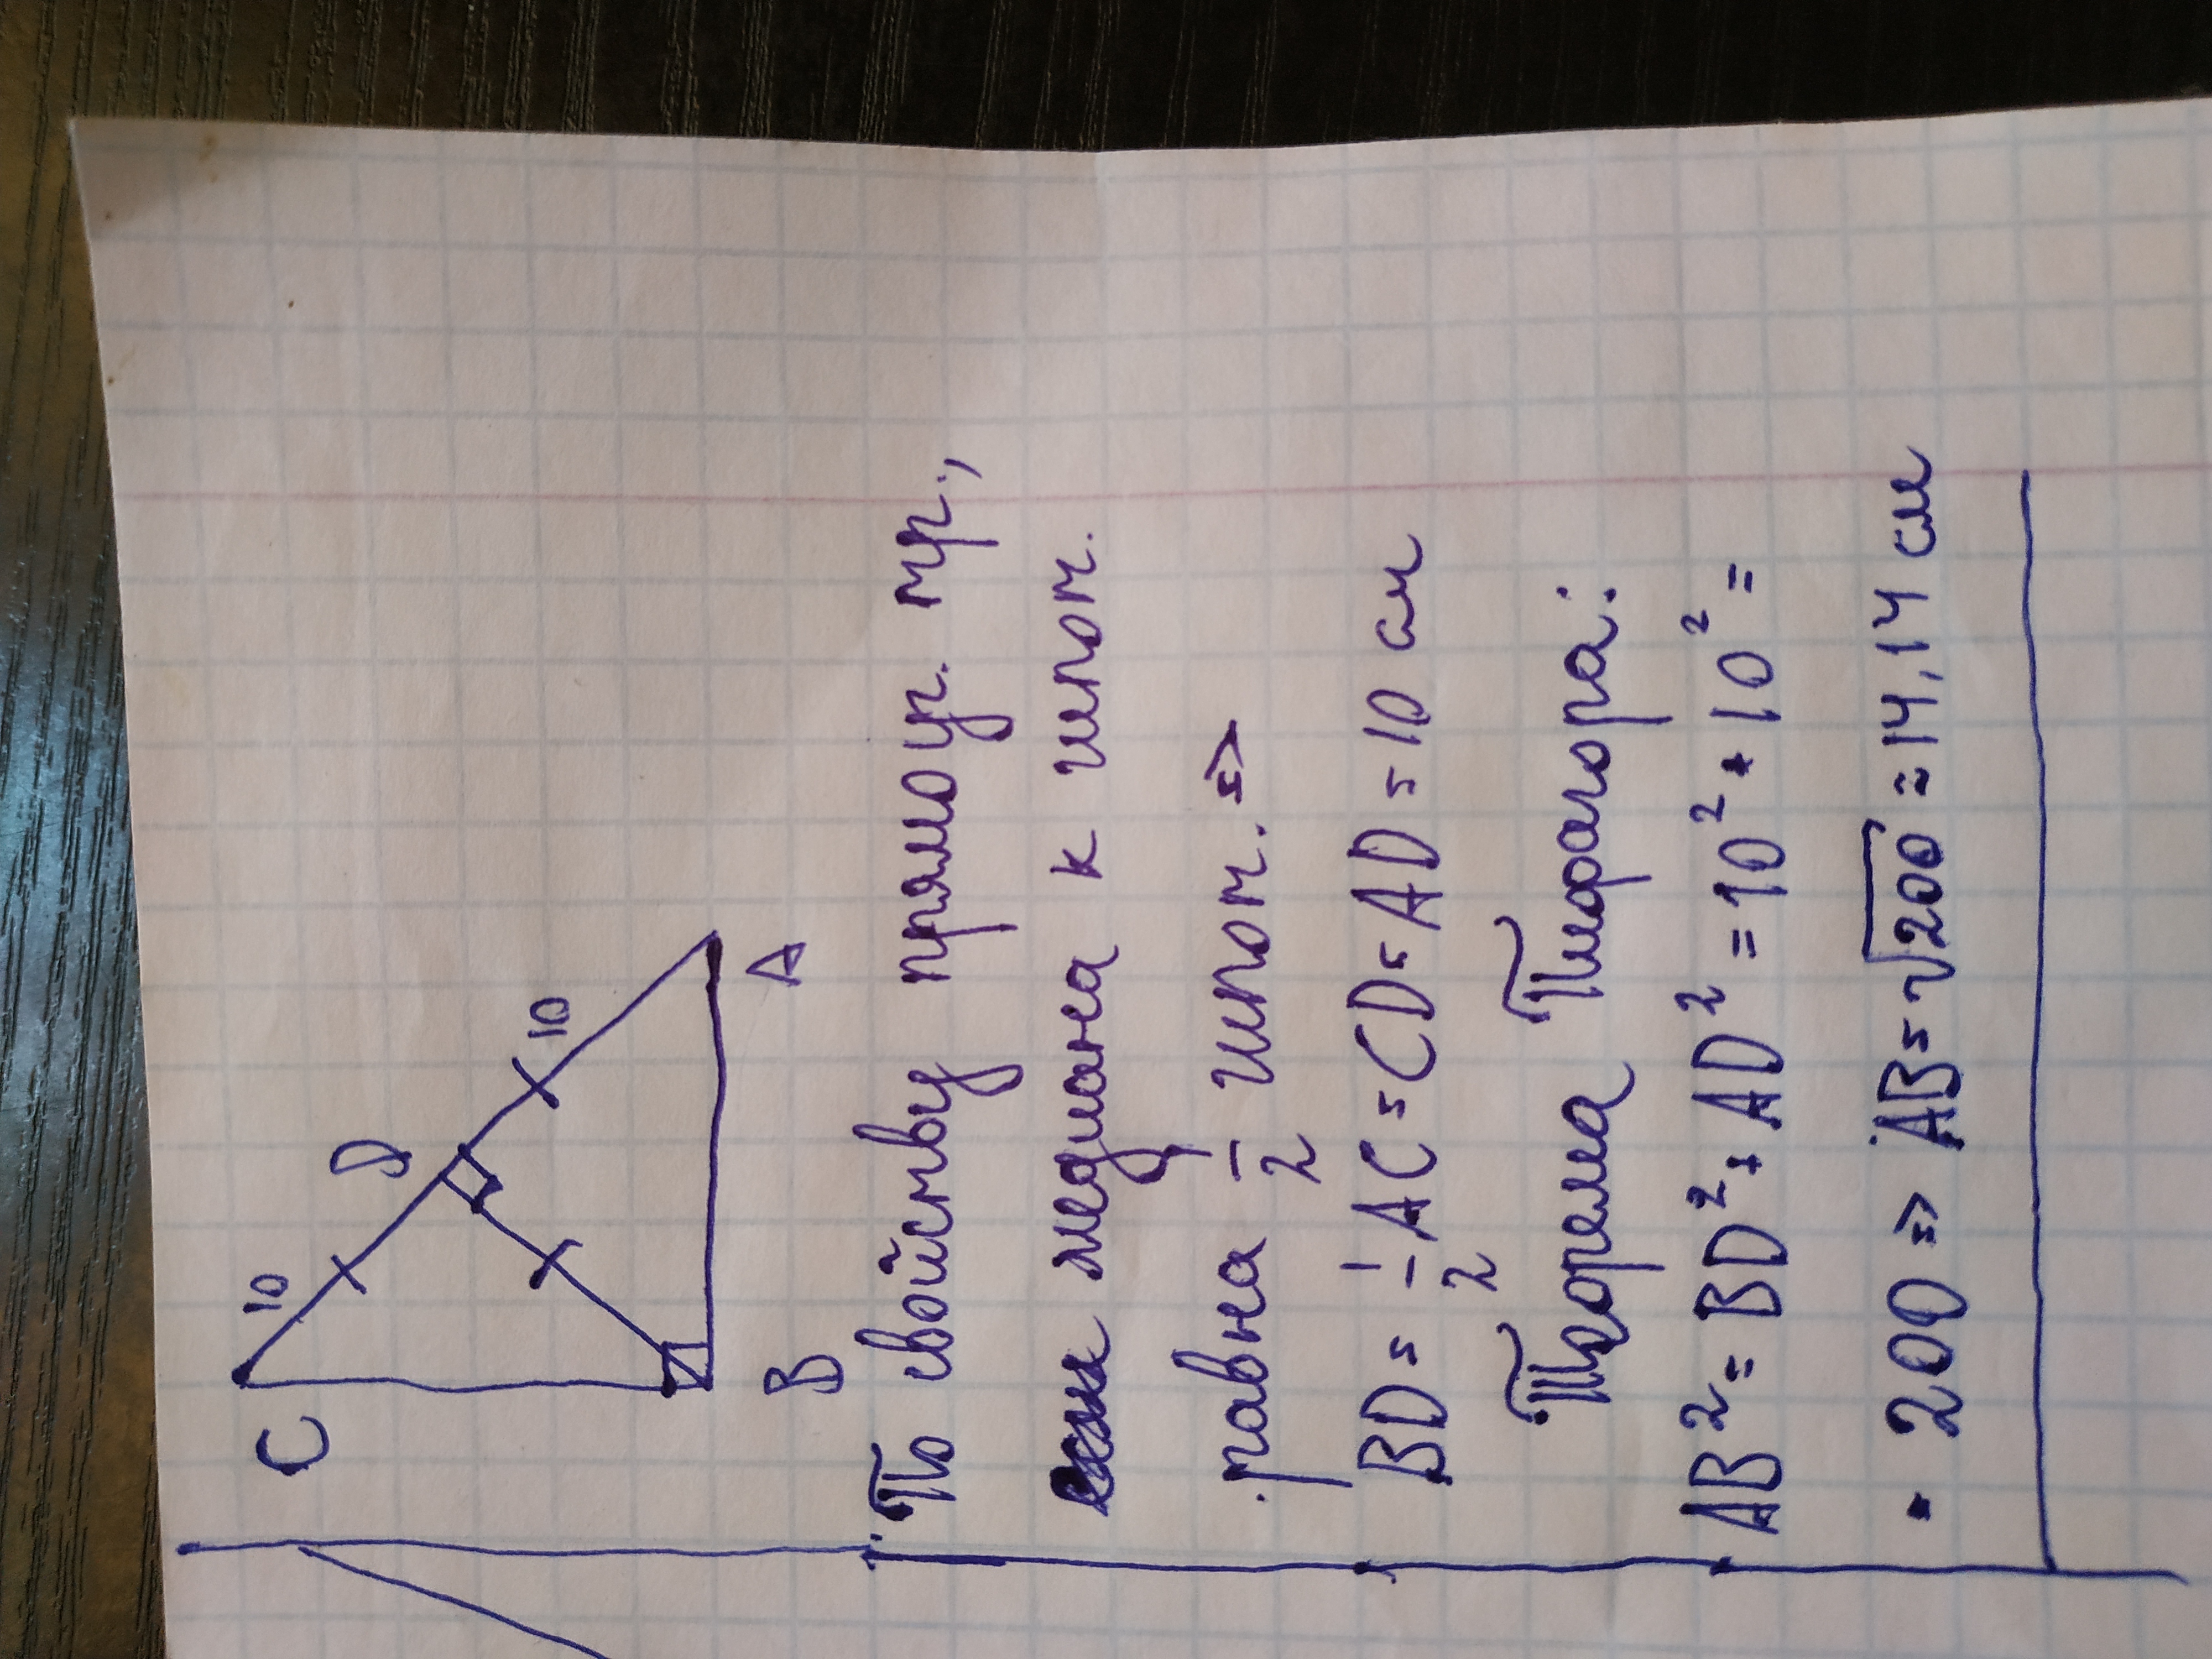 C
10
D
10
B
A
По свойству прямоуг. тр.,
если медиана к гипот.
равна 1/2 гипот. =>
BD = 1/2 AC = CD = AD = 10 см
Теорема Пифагора:
AB² = BD² + AD² = 10² + 10² =
= 200 => AB = √200 ≈ 14,14 см